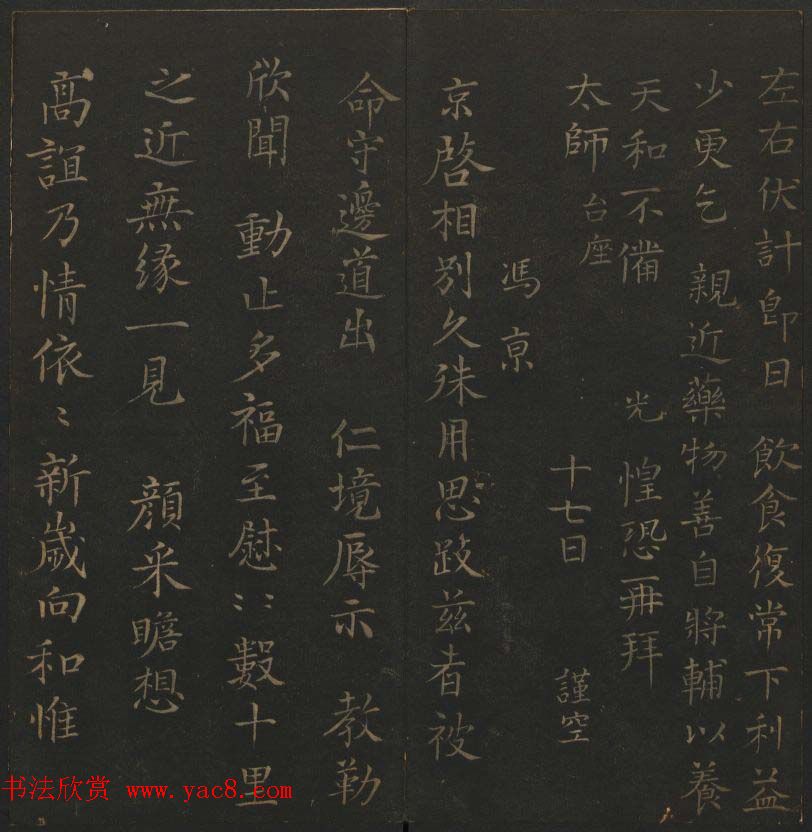 左右伏計即日 飲食復常下利益
少更乞 親近藥物善自將輔以養
天和不備 光惶恐再拜
太師台座 十七日 謹空
馮京
京啓相別久殊用思跂兹者被
命守邊道出 仁境辱示 教勒
欣聞 動止多福至慰〻數十里
之近無緣一見 顏采瞻想
高誼乃情依〻新歲向和惟
书法欣赏 www.yac8.com